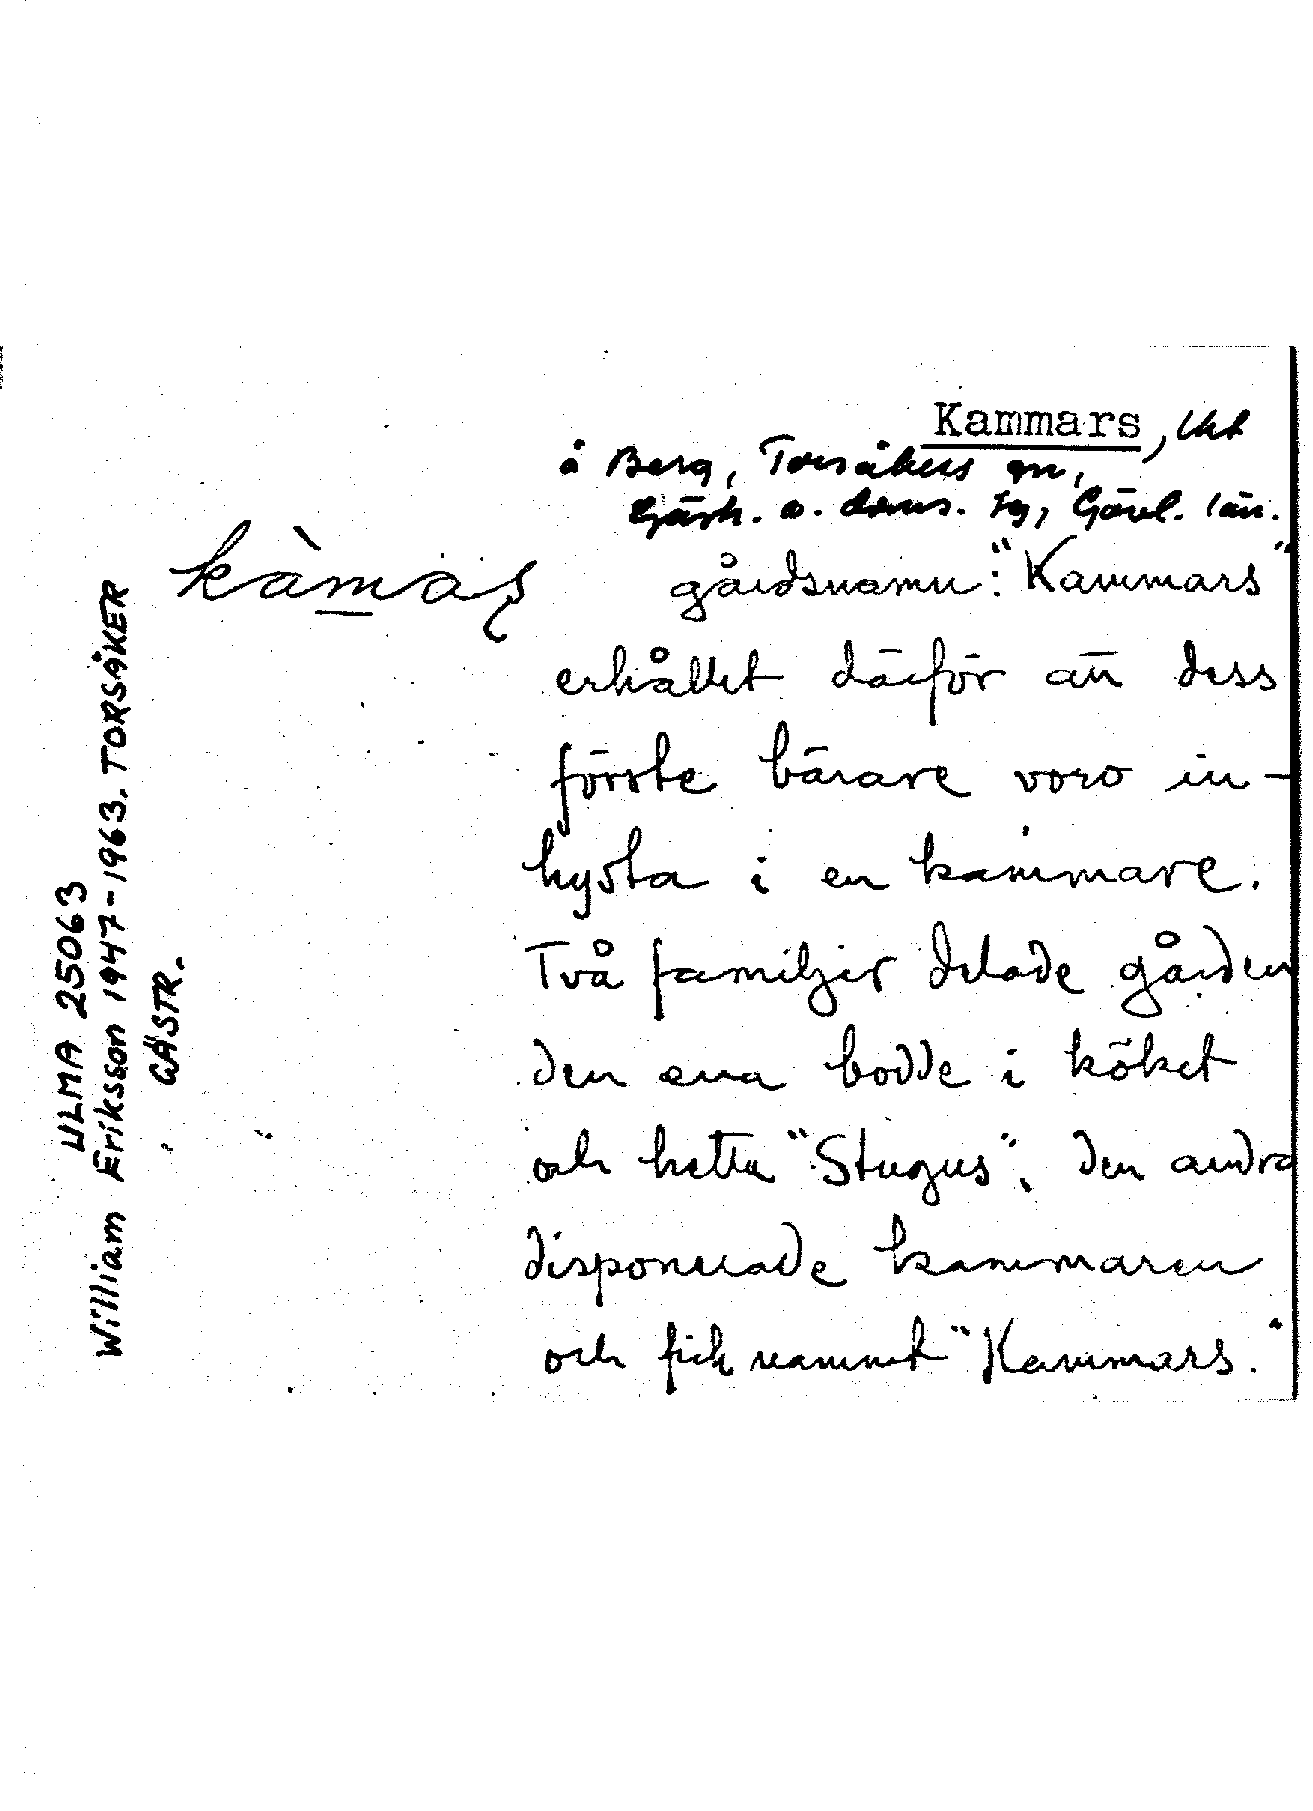 Kammars, lht
å Berg, Torsåkers sn,
Gästr. ö. doms. tg, Gävl. län.
kàmaș gårdsnamn: "Kammars"
erhållet därför att dess
förste bärare voro in-
hysta i en kammare.
Två familjer delade gården
den ena bodde i köket
och hette "Stugus", den andra
disponerade kammaren
och fick namnet "Kammars."
ULMA 25063
William Eriksson 1947-1963. TORSÅKER
GÄSTR.